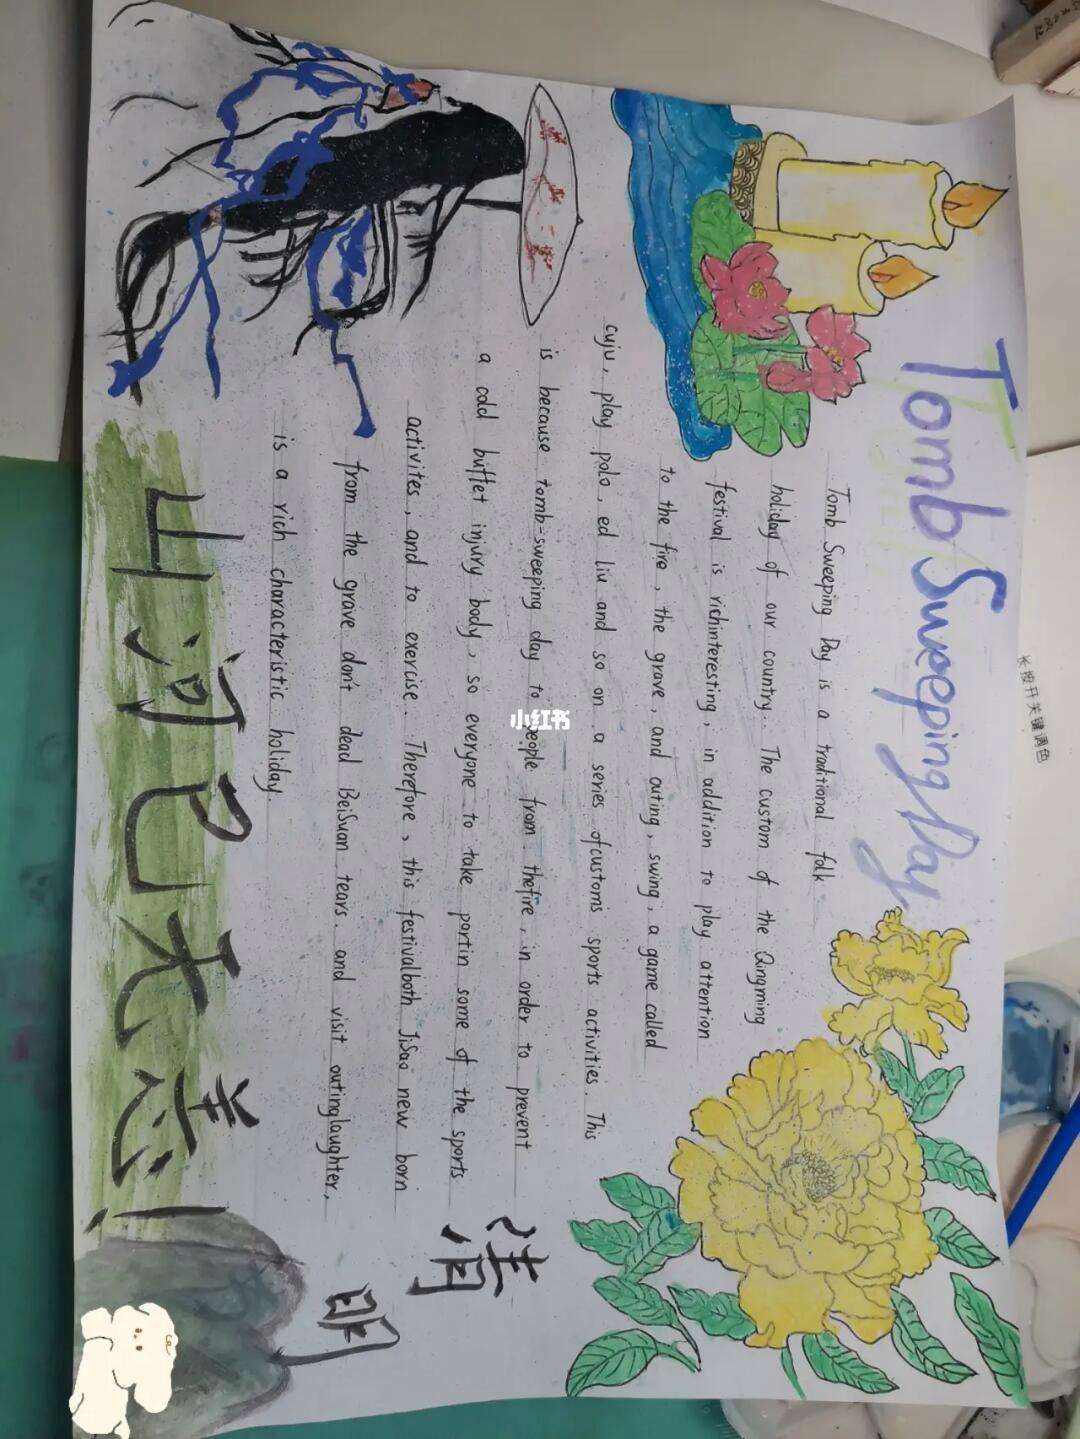 Tomb Sweeping Day
Tomb Sweeping Day is a traditional folk
holiday of our country. The custom of the Qingming
festival is richinteresting, in addition to play attention
to the fire, the grave, and outing, swing, a game called
cuju, play polo, ed liu and so on a series ofcustoms sports activities. This
is because tomb-sweeping day to people from thefire, in order to prevent
a cold buffet injury body, so everyone to take partin some of the sports
activites, and to exercise. Therefore, this festivalboth JiSao new born
from the grave don't dead BeiSuan tears, and visit outinglaughter,
is a rich characteristic holiday.
清
明
山河已无恙!
小红书
长按开关键调色